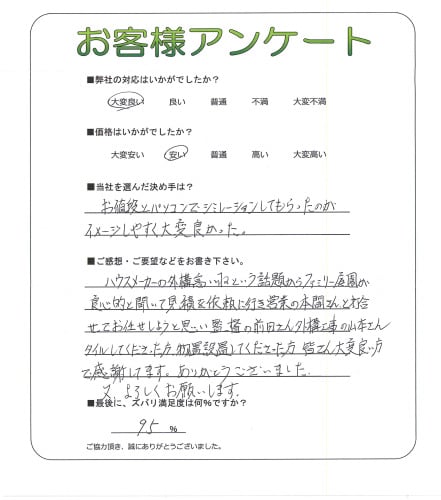 お客様アンケート
■弊社の対応はいかがでしたか？
大変良い 良い 普通 不満 大変不満
■価格はいかがでしたか？
大変安い 安い 普通 高い 大変高い
■当社を選んだ決め手は？
お値段とパソコンでシミレーションしてもらったのが
イメージしやすく大変良かった。
■ご感想・ご要望などをお書き下さい。
ハウスメーカーの外構高いねという話題からファミリー庭園が
良心的と聞いて見積を依頼に行き営業の本間さんと打合
せてお任せしようと思い監督の前田さん外構工事の山本さん
タイルしてくださった方、物置設置してくださった方 皆さん大変良い方
で感謝してます。ありがとうございました。
又、よろしくお願いします。
■最後に、ズバリ満足度は何％ですか？
95 ％
ご協力頂き、誠にありがとうございました。